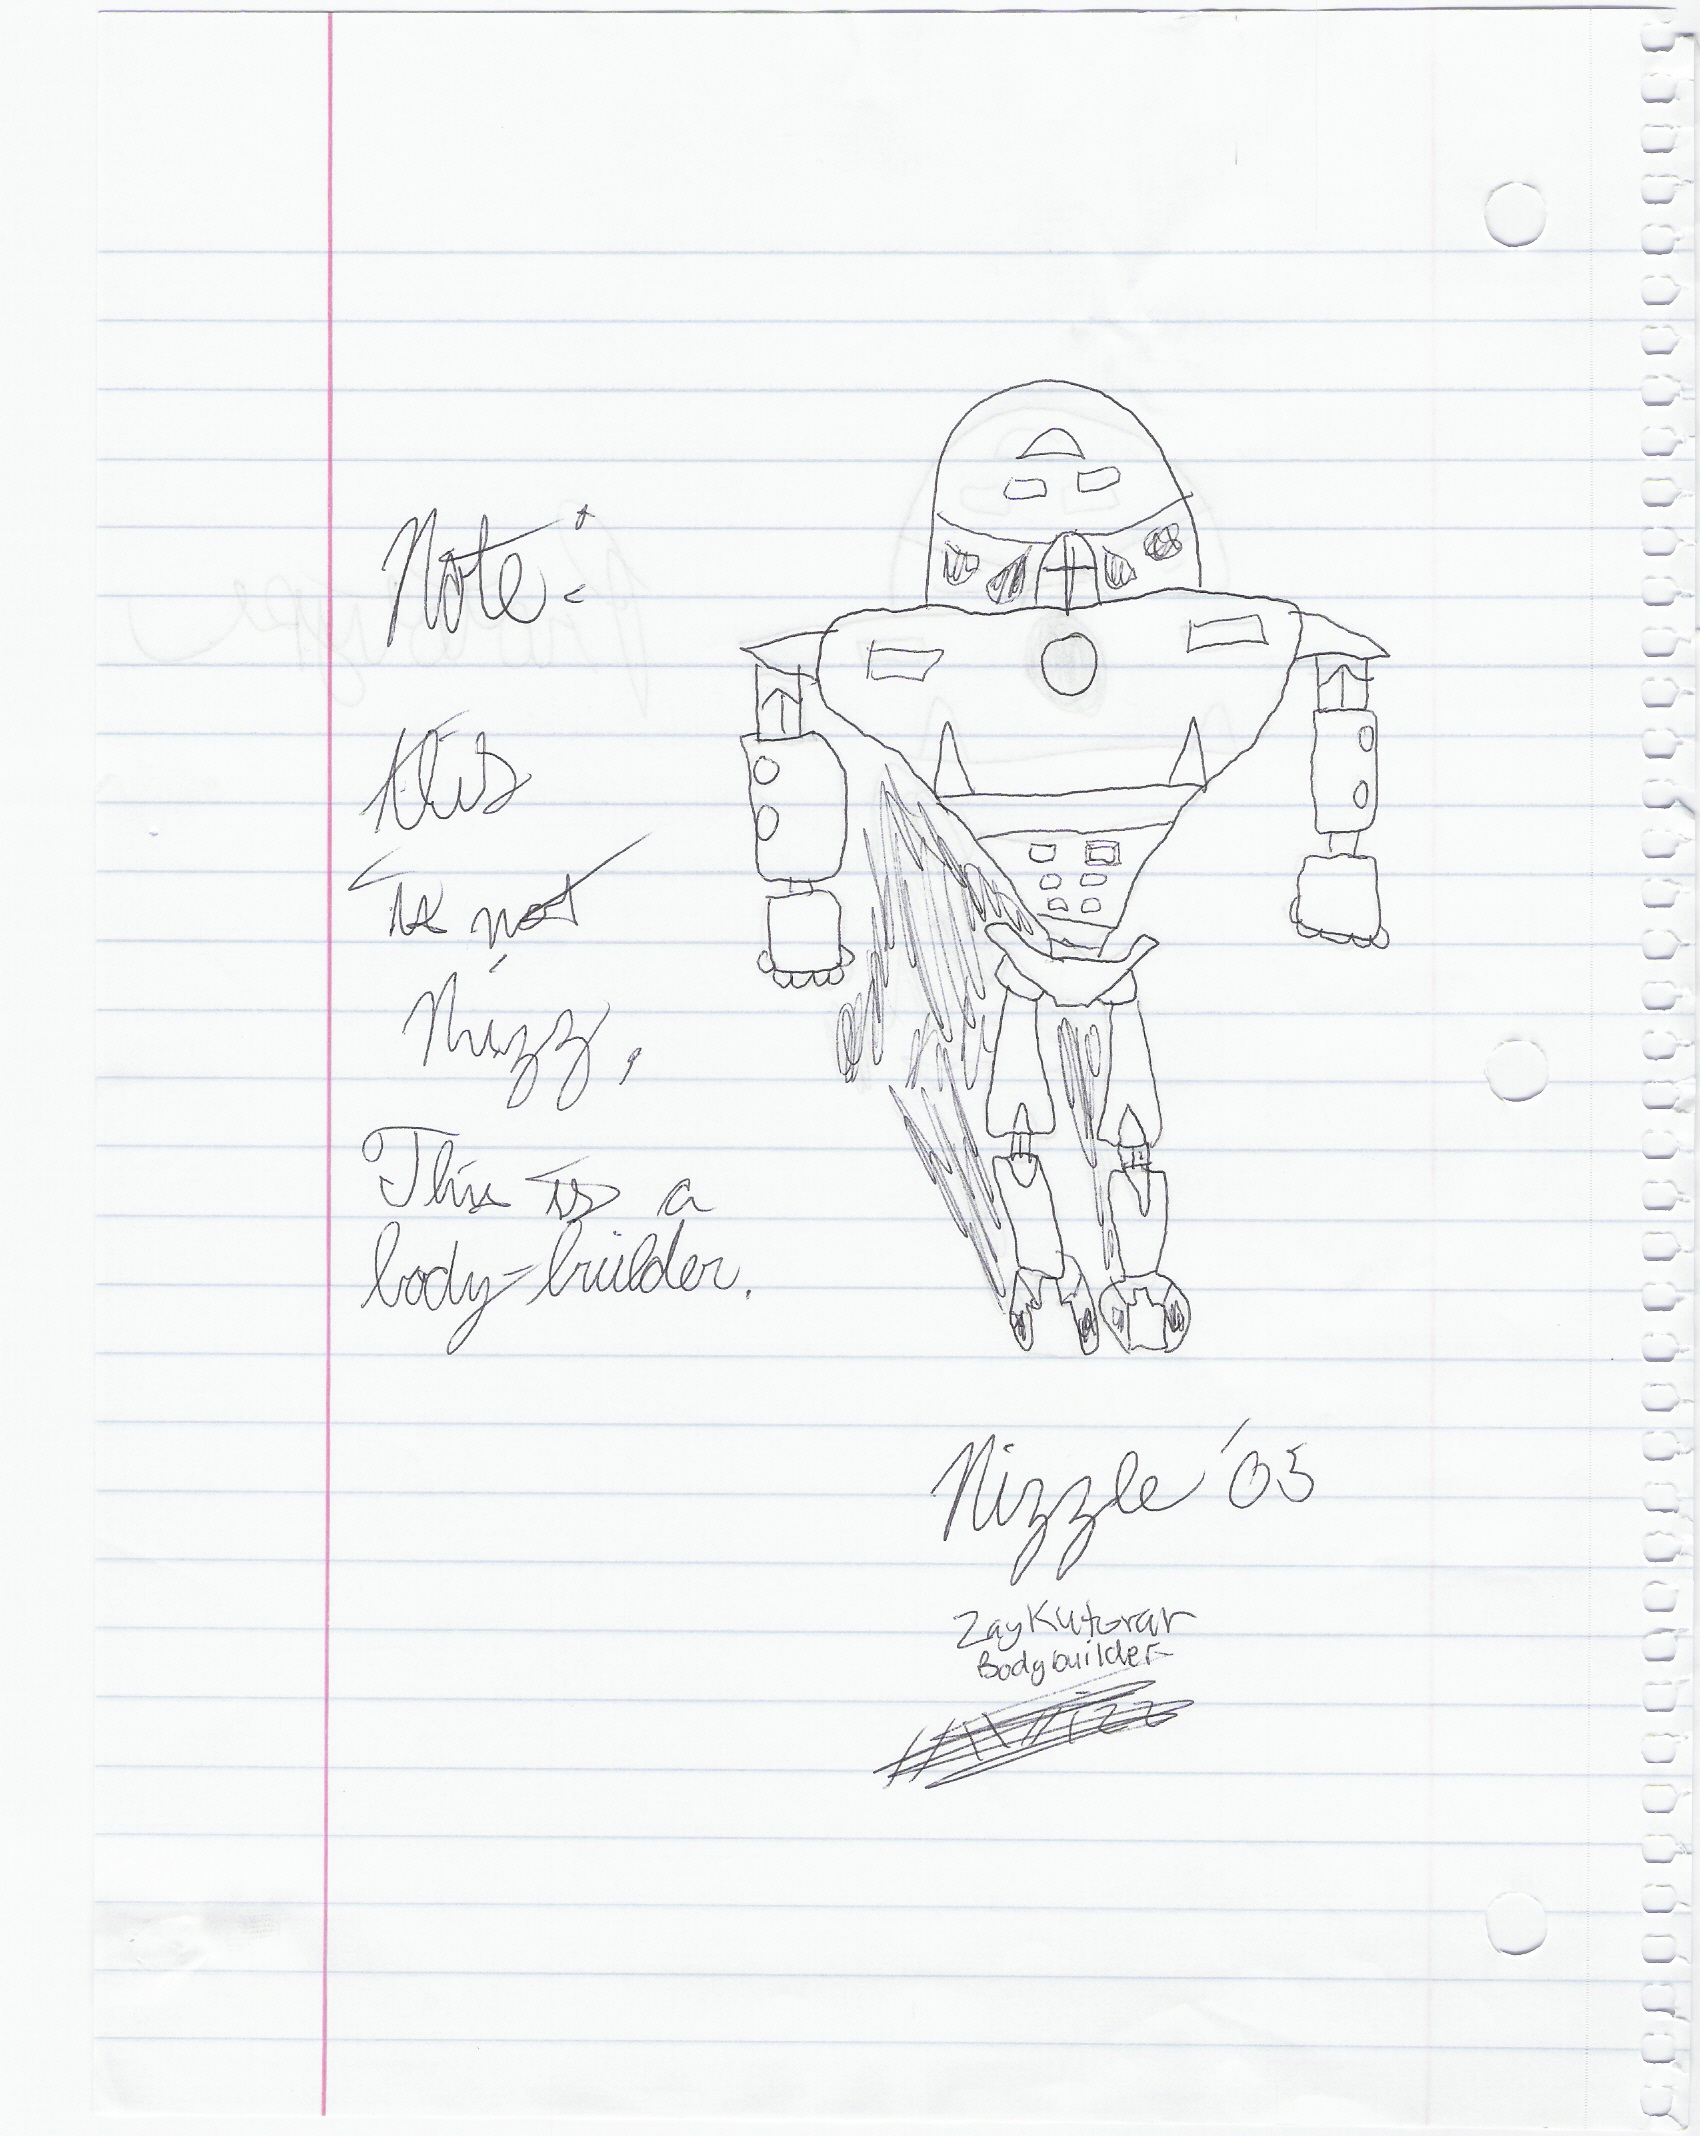 Note:
this
is not
Nizz,
This is a
body-builder.
Nizzle '05
Zaykutorar
Bodybuilder